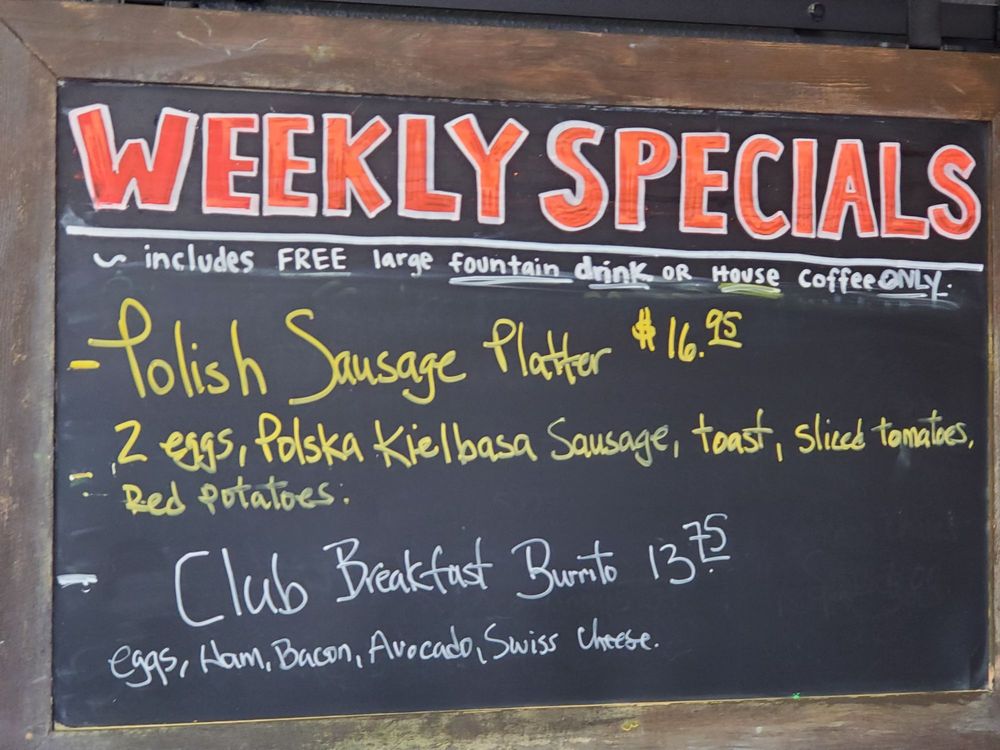 WEEKLY SPECIALS
~ includes FREE large fountain drink OR House coffee ONLY.
- Polish Sausage Platter $16.95
2 eggs, Polska Kielbasa Sausage, toast, sliced tomatoes,
Red Potatoes.
- Club Breakfast Burrito 13.75
eggs, Ham, Bacon, Avocado, Swiss Cheese.